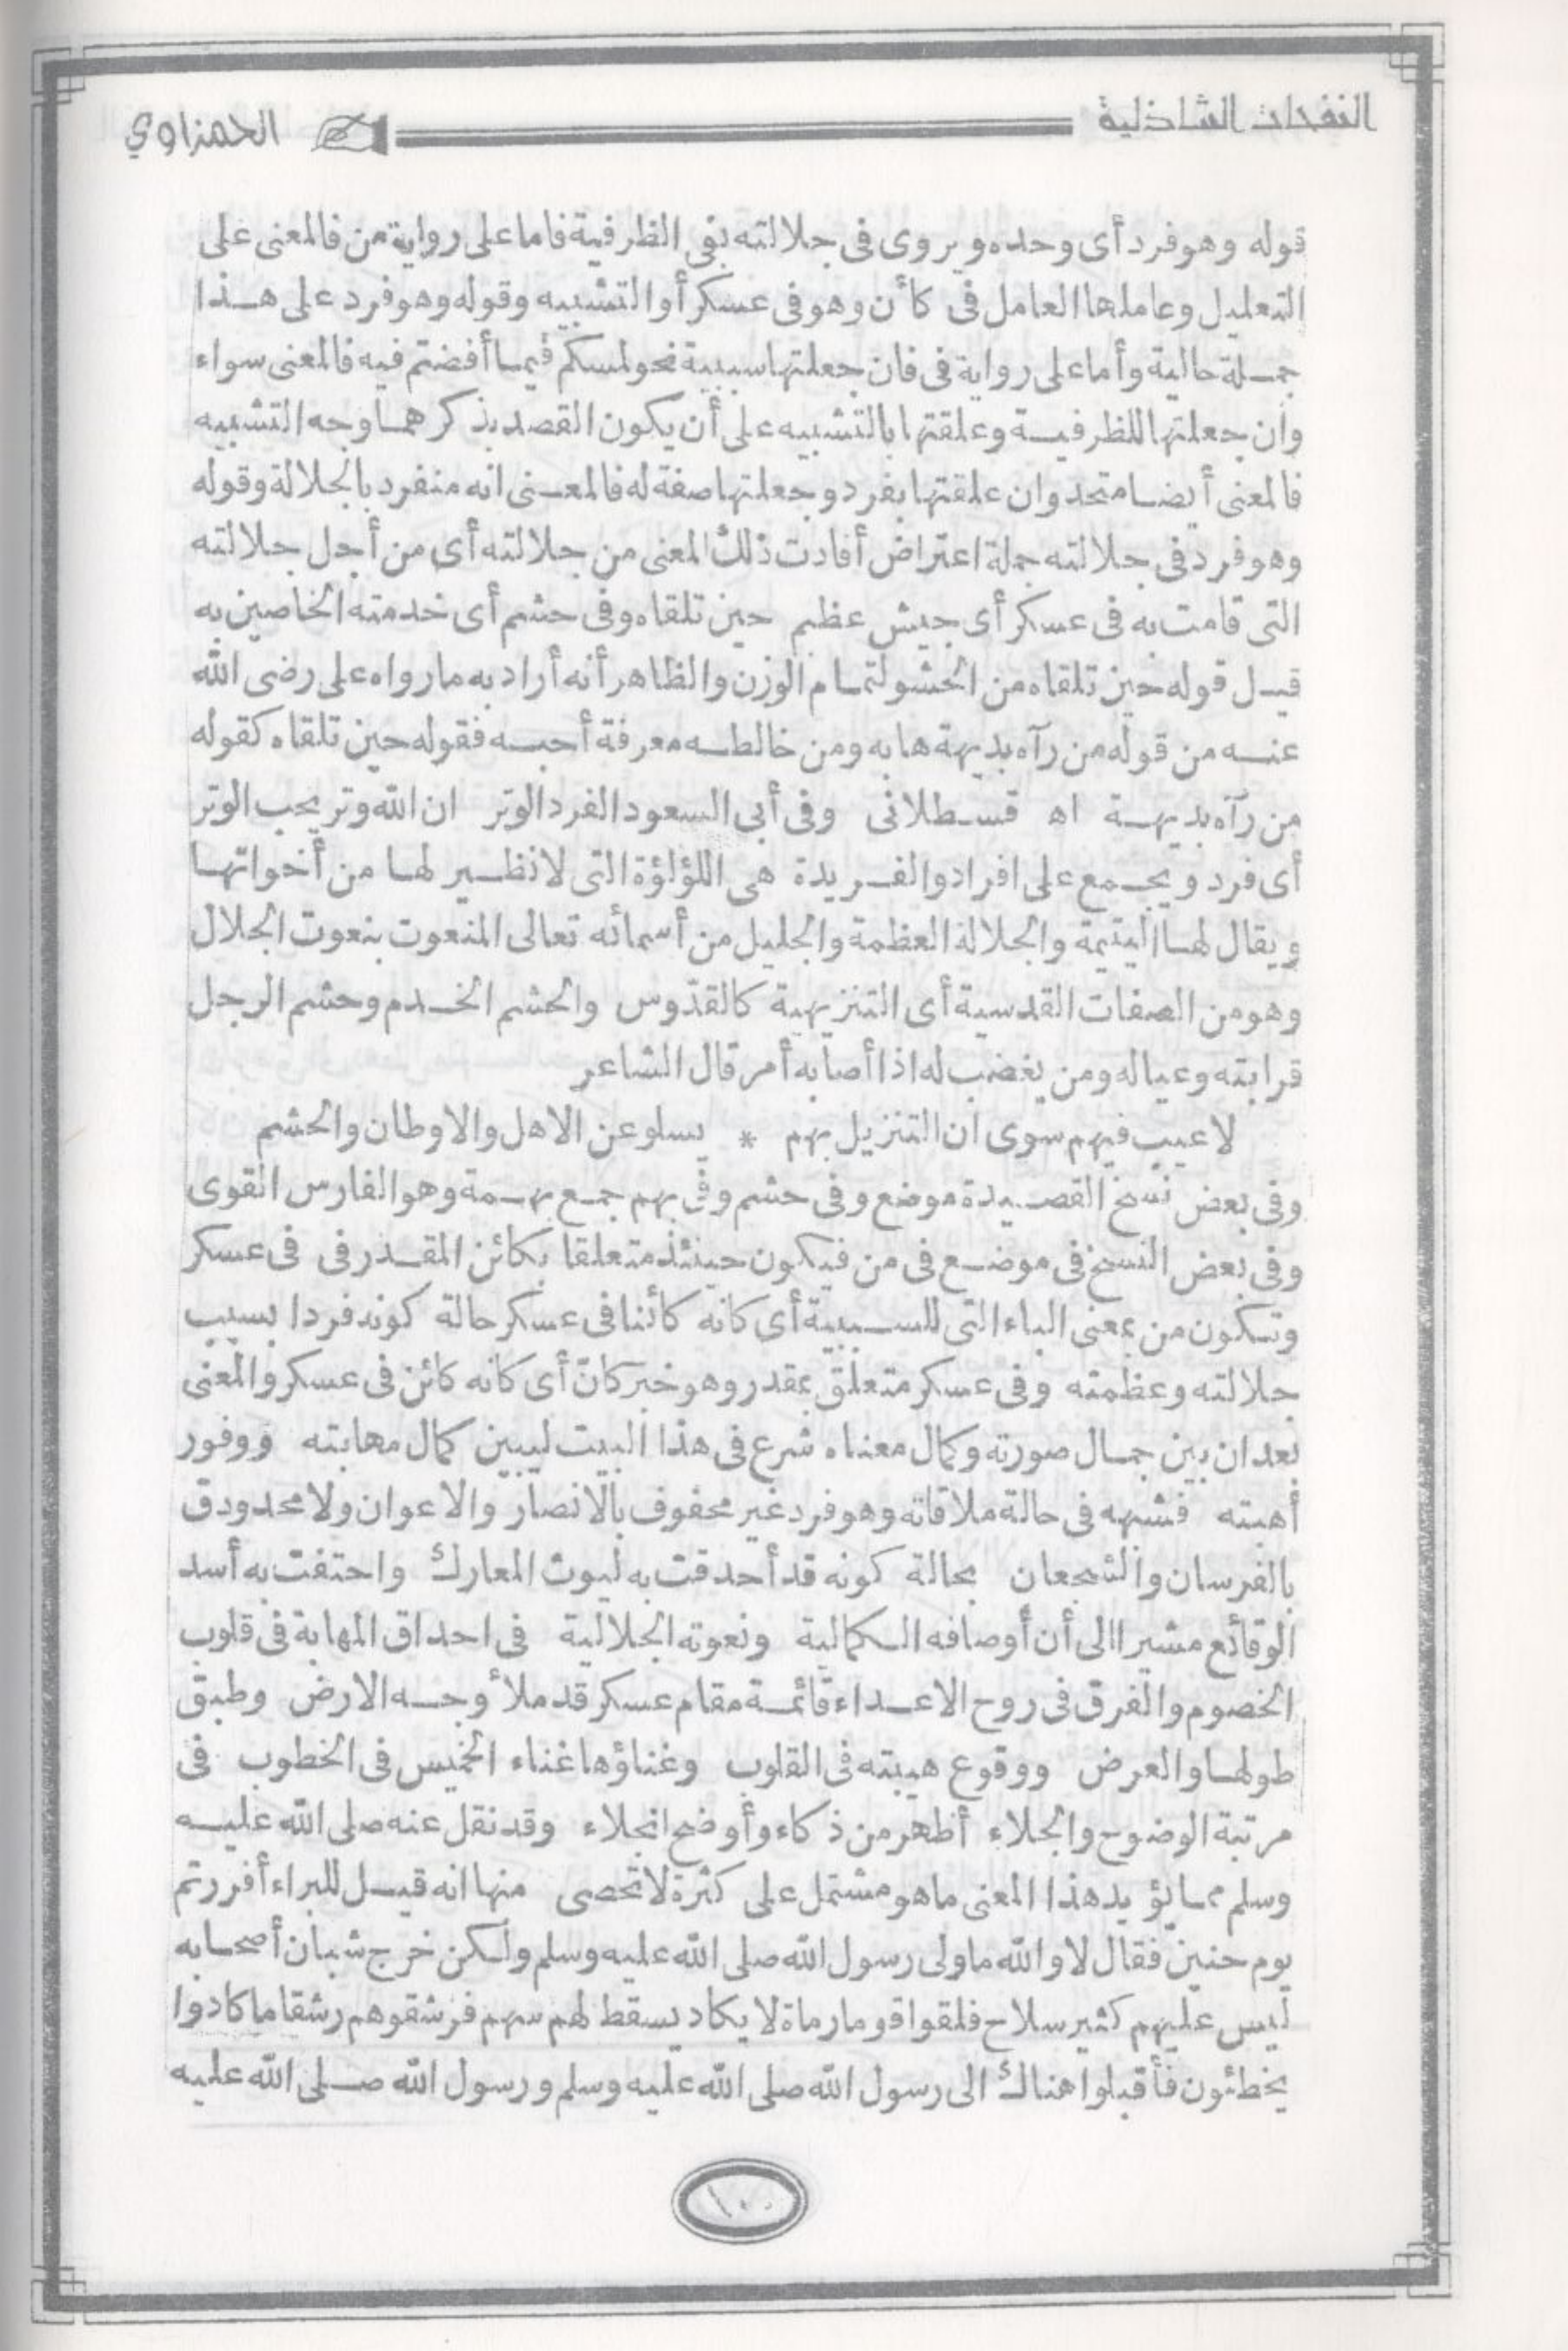 النفحات الشاذلية
الحمزاوي
قوله وهو فرد أى وحده ويروى فى جلالته بفى الظرفية فاما على رواية من فالمعنى على
التعليل وعاملها العامل فى كأن وهو فى عسكر أو التشبيه وقوله وهو فرد على هذا
جملة حالية وأما على رواية فى فان جعلتها سببية نحو لمسكم فيما أفضتم فيه فالمعنى سواء
وان جعلتها للظرفية وعلقتها بالتشبيه على أن يكون القصد بذكرهما وجه التشبيه
فالمعنى أيضا متحد وان علقتها بفرد وجعلتها صفة له فالمعنى انه منفرد بالجلالة وقوله
وهو فرد فى جلالته جملة اعتراض أفادت ذلك المعنى من جلالته أى من أجل جلالته
التى قامت به فى عسكر أى جيش عظيم حين تلقاه وفى حشم أى خدمته الخاصين به
قيل قوله حين تلقاه من الحشو لتمام الوزن والظاهر أنه أراد به مارواه على رضى الله
عنه من قوله من رآه بديهة هابه ومن خالطه معرفة أحبه فقوله حين تلقاه كقوله
من رآه بديهة اه قسطلانى وفى أبى السعود الفرد الوتر ان الله وتر يحب الوتر
أى فرد ويجمع على افراد والفريدة هى اللؤلؤة التى لا نظير لها من أخواتها
ويقال لها اليتيمة والجلالة العظمة والجليل من أسمائه تعالى المنعوت بنعوت الجلال
وهو من الصفات القدسية أى التنزيهية كالقدّوس والحشم الخدم وحشم الرجل
قرابته وعياله ومن يغضب له اذا أصابه أمر قال الشاعر
لا عيب فيهم سوى ان النزيل بهم * يسلو عن الاهل والاوطان والحشم
وفى بعض نسخ القصيدة موضع وفى حشم وفى بهم جمع بهمة وهو الفارس القوى
وفى بعض النسخ فى موضع فى من فيكون حينئذ متعلقا بكائن المقدر فى فى عسكر
وتكون من بمعنى الباء التى للسببية أى كانه كائنا فى عسكر حالة كونه فردا بسبب
جلالته وعظمته وفى عسكر متعلق بمقدر وهو خبر كانّ أى كانه كائن فى عسكر والمعنى
بعد ان بين جمال صورته وكمال معناه شرع فى هذا البيت ليبين كمال مهابته ووفور
أهبته فشبهه فى حالة ملاقاته وهو فرد غير محفوف بالانصار والاعوان ولا محدودق
بالفرسان والشجعان بحالة كونه قد أحدقت به ليوث المعارك واحتفت به أسد
الوقائع مشيرا الى أن أوصافه الكمالية ونعوته الجلالية فى احداق المهابة فى قلوب
الخصوم والفرق فى روح الاعداء قائمة مقام عسكر قد ملأ وجه الارض وطبق
طولها والعرض ووقوع هيبته فى القلوب وغناؤها غناء الخميس فى الخطوب فى
مرتبة الوضوح والجلاء أظهر من ذكاء وأوضح انجلاء وقد نقل عنه صلى الله عليه
وسلم مما يؤيد هذا المعنى ماهو مشتمل على كثرة لا تحصى منها انه قيل للبراء أفررتم
يوم حنين فقال لا والله ما ولى رسول الله صلى الله عليه وسلم ولكن خرج شبان أصحابه
ليس عليهم كثير سلاح فلقوا قوما رماة لا يكاد يسقط لهم سهم فرشقوهم رشقا ما كادوا
يخطئون فأقبلوا هناك الى رسول الله صلى الله عليه وسلم ورسول الله صلى الله عليه
١٠٠